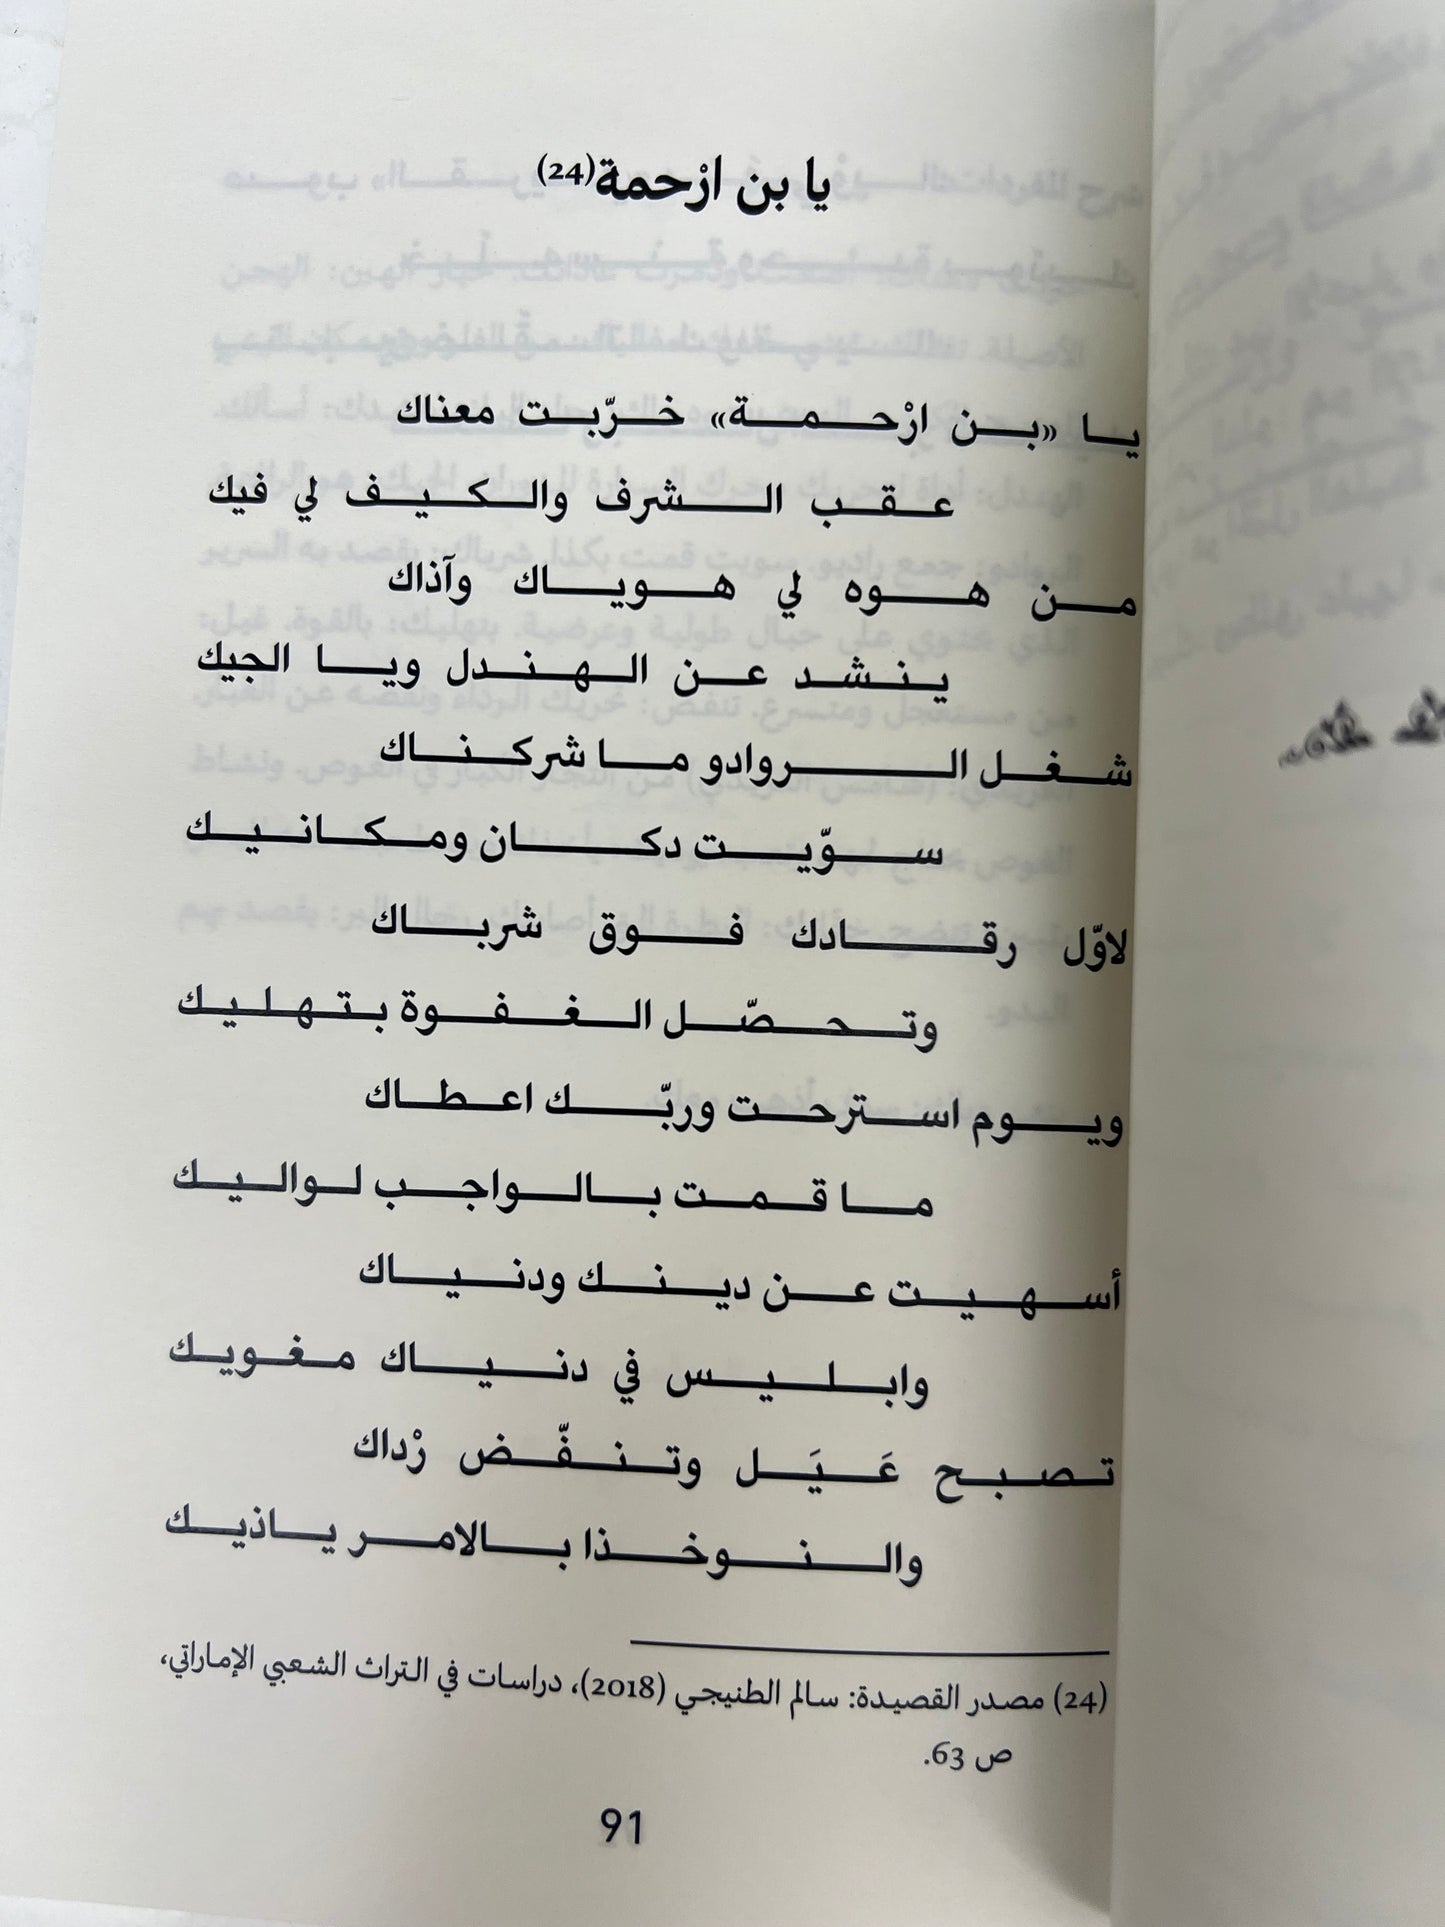 يا بن ازْحمة(24)
يا «بن ازْحمة» خرّبت معناك
عقب الشرف والكيف لي فيك
من هوه لي هوياك وآذاك
ينشد عن الهندل ويا الجيك
شغل الروادو ما شركناك
سوّيت دكان ومكانيك
لاوّل رقادك فوق شرباك
وتحصّل الغفوة بتهليك
ويوم استرحت وربّك اعطاك
ما قمت بالواجب لواليك
أسهيت عن دينك ودنياك
وابليس في دنياك مغويك
تصبح عَيَل وتنفّض رْداك
والنوخذا بالامر ياذيك
(24) مصدر القصيدة: سالم الطنيجي (2018)، دراسات في التراث الشعبي الإماراتي،
ص 63.
91